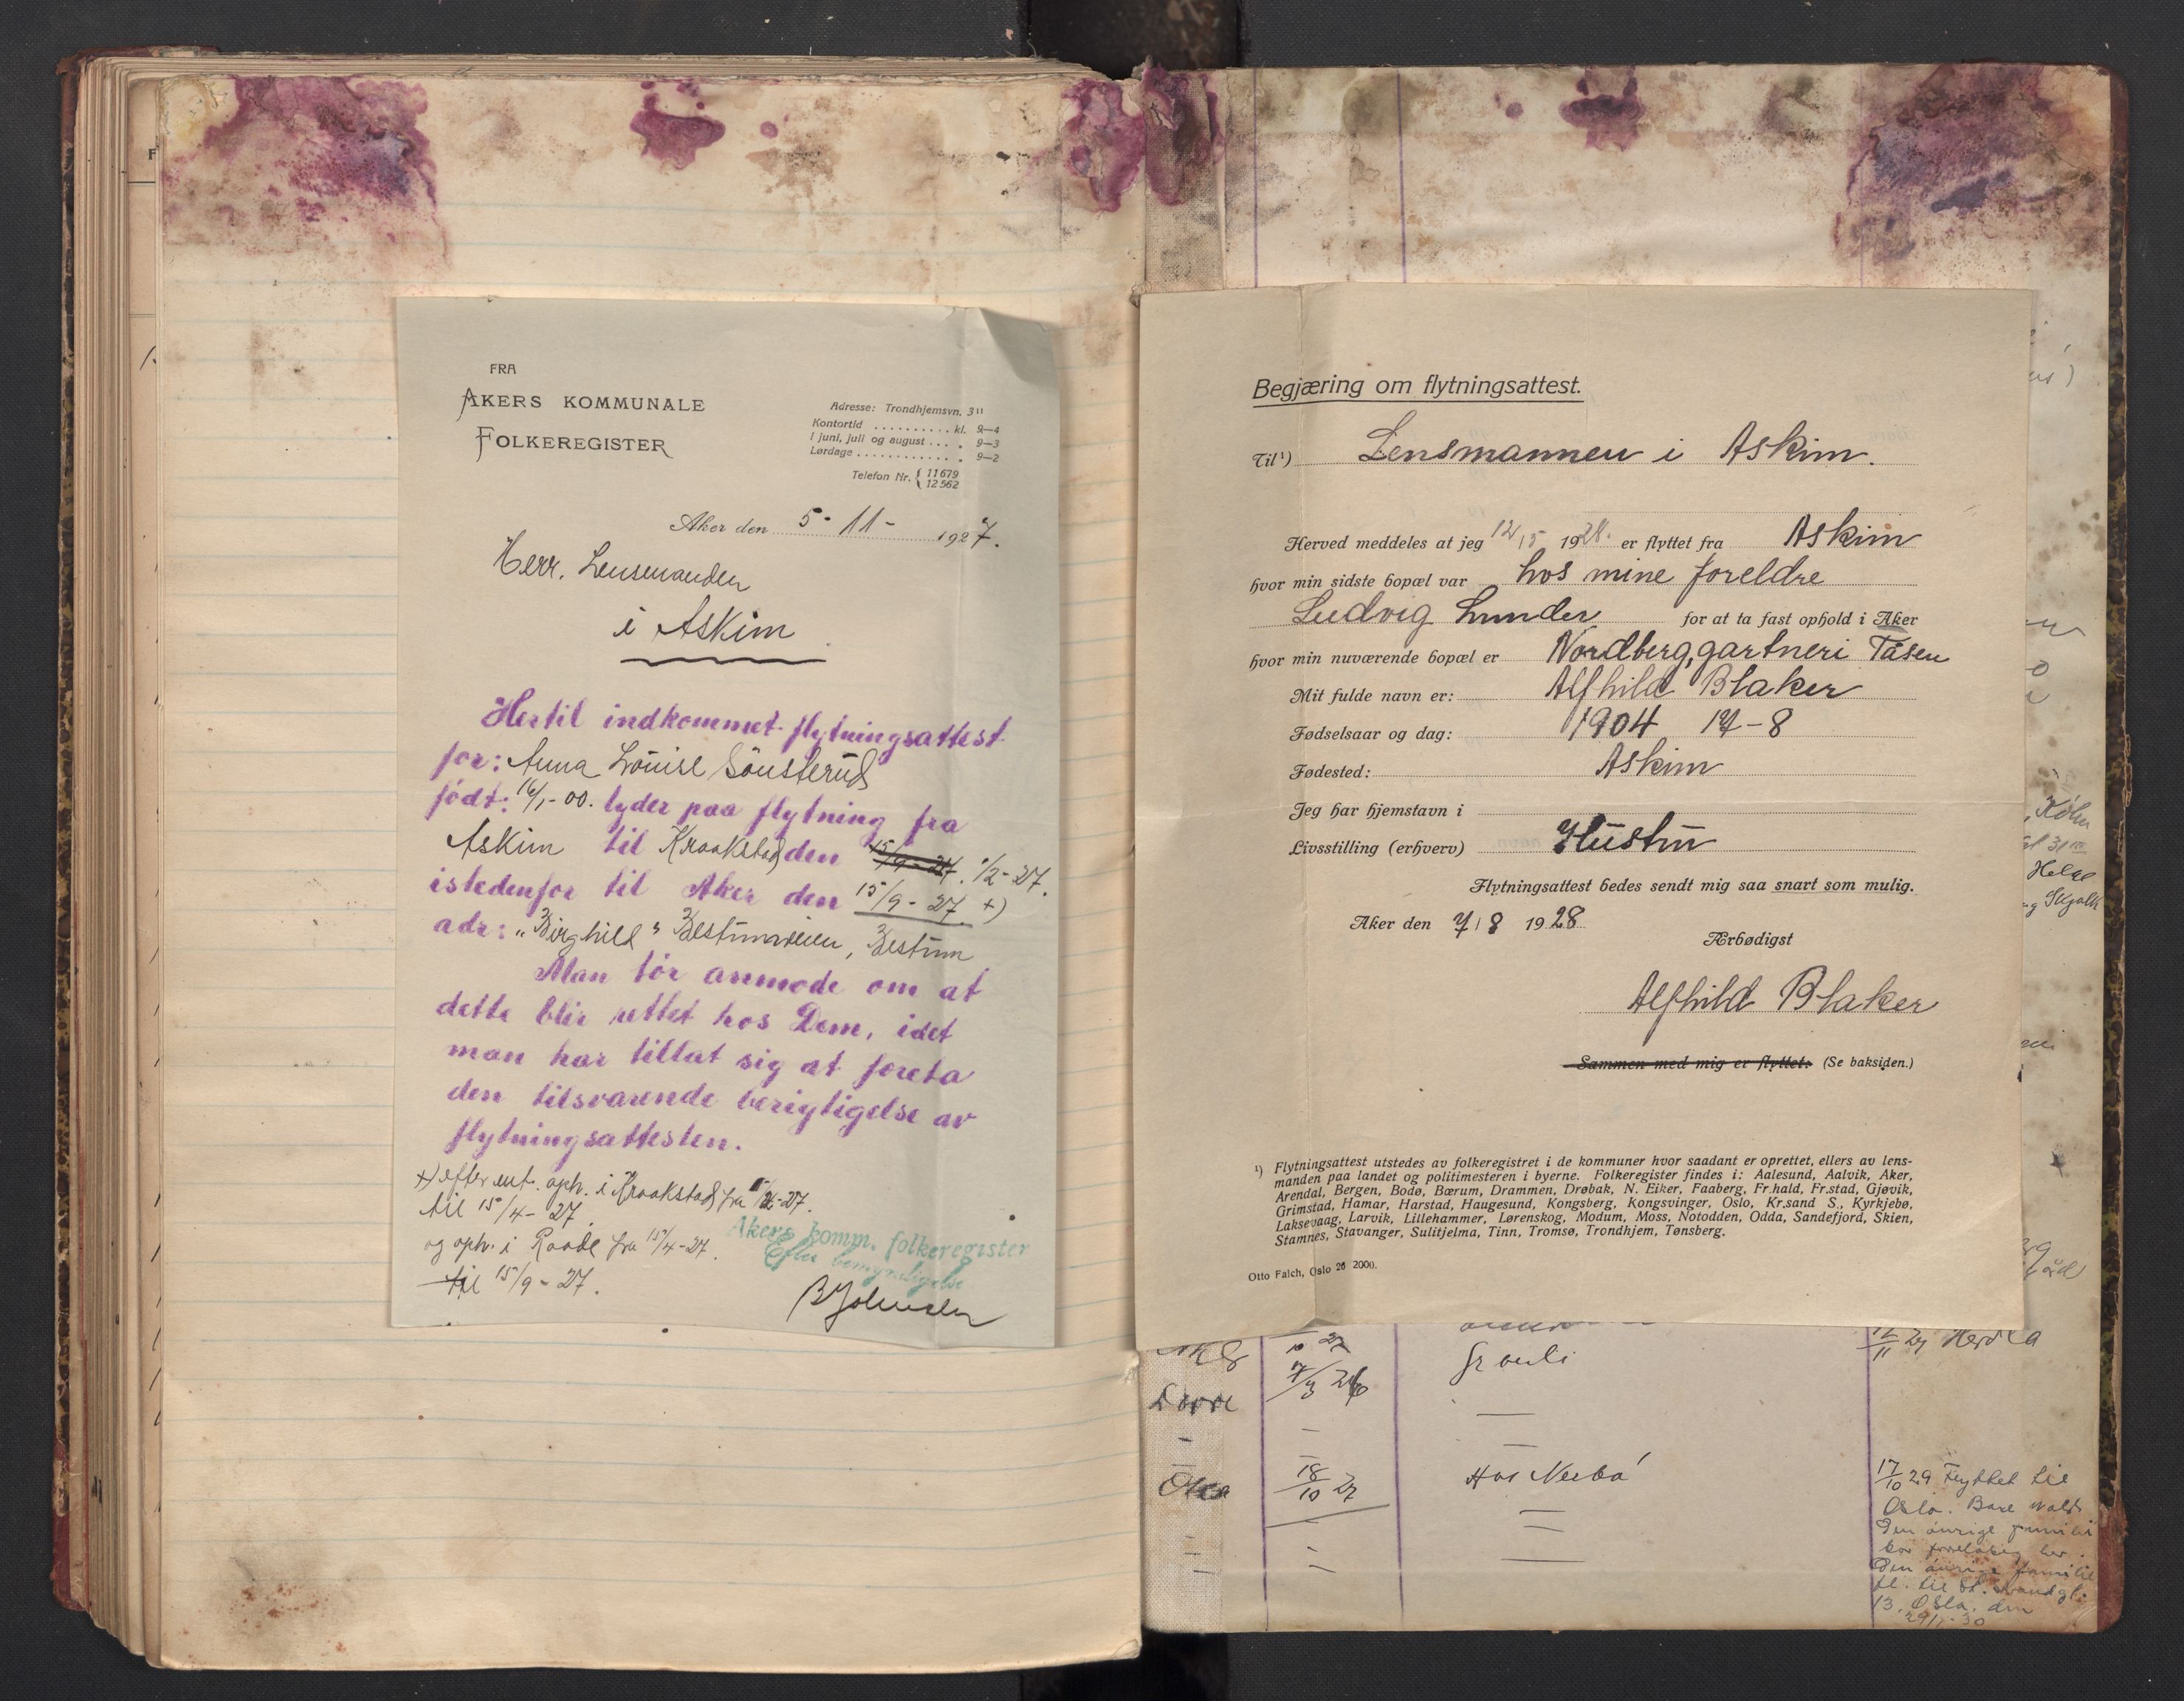 FRA
AKERS KOMMUNALE
FOLKEREGISTER
Adresse: Trondhjemsvn. 3 II
Kontortid .......... kl. 9—4
I juni, juli og august .... „ 9—3
Lørdage ............ „ 9—2
Telefon Nr. { 11679
12562
Aker den 5 - 11 - 1927.
Herr. Lensmanden
i Askim
Hertil indkommet flytningsattest
for: Anna Louise Sønsterud
født: 16/1-00. lyder paa flytning fra
Askim til Kraakstad den 15/9-27. 1/2-27.
istedenfor til Aker den 15/9-27 +)
adr: „Birghild" Bestumveien, Bestum
Man tør anmode om at
dette blir rettet hos Dem, idet
man har tillat sig at foreta
den tilsvarende berigtigelse av
flytningsattesten.
+) efter oph. i Kraakstad fra 1/2-27.
til 15/4-27
og oph. i Raade fra 15/4-27.
til 15/9-27.
Akers komm. folkeregister
Efter bemyndigelse
Begjæring om flytningsattest.
Til ¹) Lensmannen i Askim.
Herved meddeles at jeg 12/5 1928. er flyttet fra Askim
hvor min sidste bopæl var hos mine foreldre
Ludvig Lunder for at ta fast ophold i Aker
hvor min nuværende bopæl er Nordberg, gartneri Tåsen
Mit fulde navn er: Alfhild Blaker
Fødselsaar og dag: 1904 17-8
Fødested: Askim
Jeg har hjemstavn i
Livsstilling (erhverv) Hustru
Flytningsattest bedes sendt mig saa snart som mulig.
Aker den 7/8 1928
Ærbødigst
Alfhild Blaker
Sammen med mig er flyttet: (Se baksiden.)
¹) Flytningsattest utstedes av folkeregistret i de kommuner hvor saadant er oprettet, ellers av lens-
manden paa landet og politimesteren i byerne. Folkeregister findes i: Aalesund, Aalvik, Aker,
Arendal, Bergen, Bodø, Bærum, Drammen, Drøbak, N. Eiker, Faaberg, Fr.hald, Fr.stad, Gjøvik,
Grimstad, Hamar, Harstad, Haugesund, Kongsberg, Kongsvinger, Oslo, Kr.sand S., Kyrkjebø,
Laksevaag, Larvik, Lillehammer, Lørenskog, Modum, Moss, Notodden, Odda, Sandefjord, Skien,
Stamnes, Stavanger, Sulitjelma, Tinn, Tromsø, Trondhjem, Tønsberg.
Otto Falch, Oslo 26 2000.
Helge
12/11 27 Herdla
18/10 27
17/10 29 Flyttet til
Oslo. Bare
Den øvrige familie
bor foreløbig her.
Den øvrige familie
13. Oslo. den
29/1-30